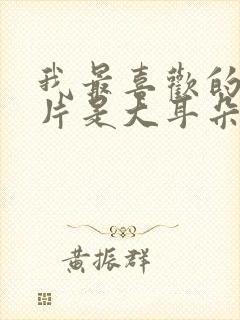 我最喜歡的
片是大耳朵
黃振群